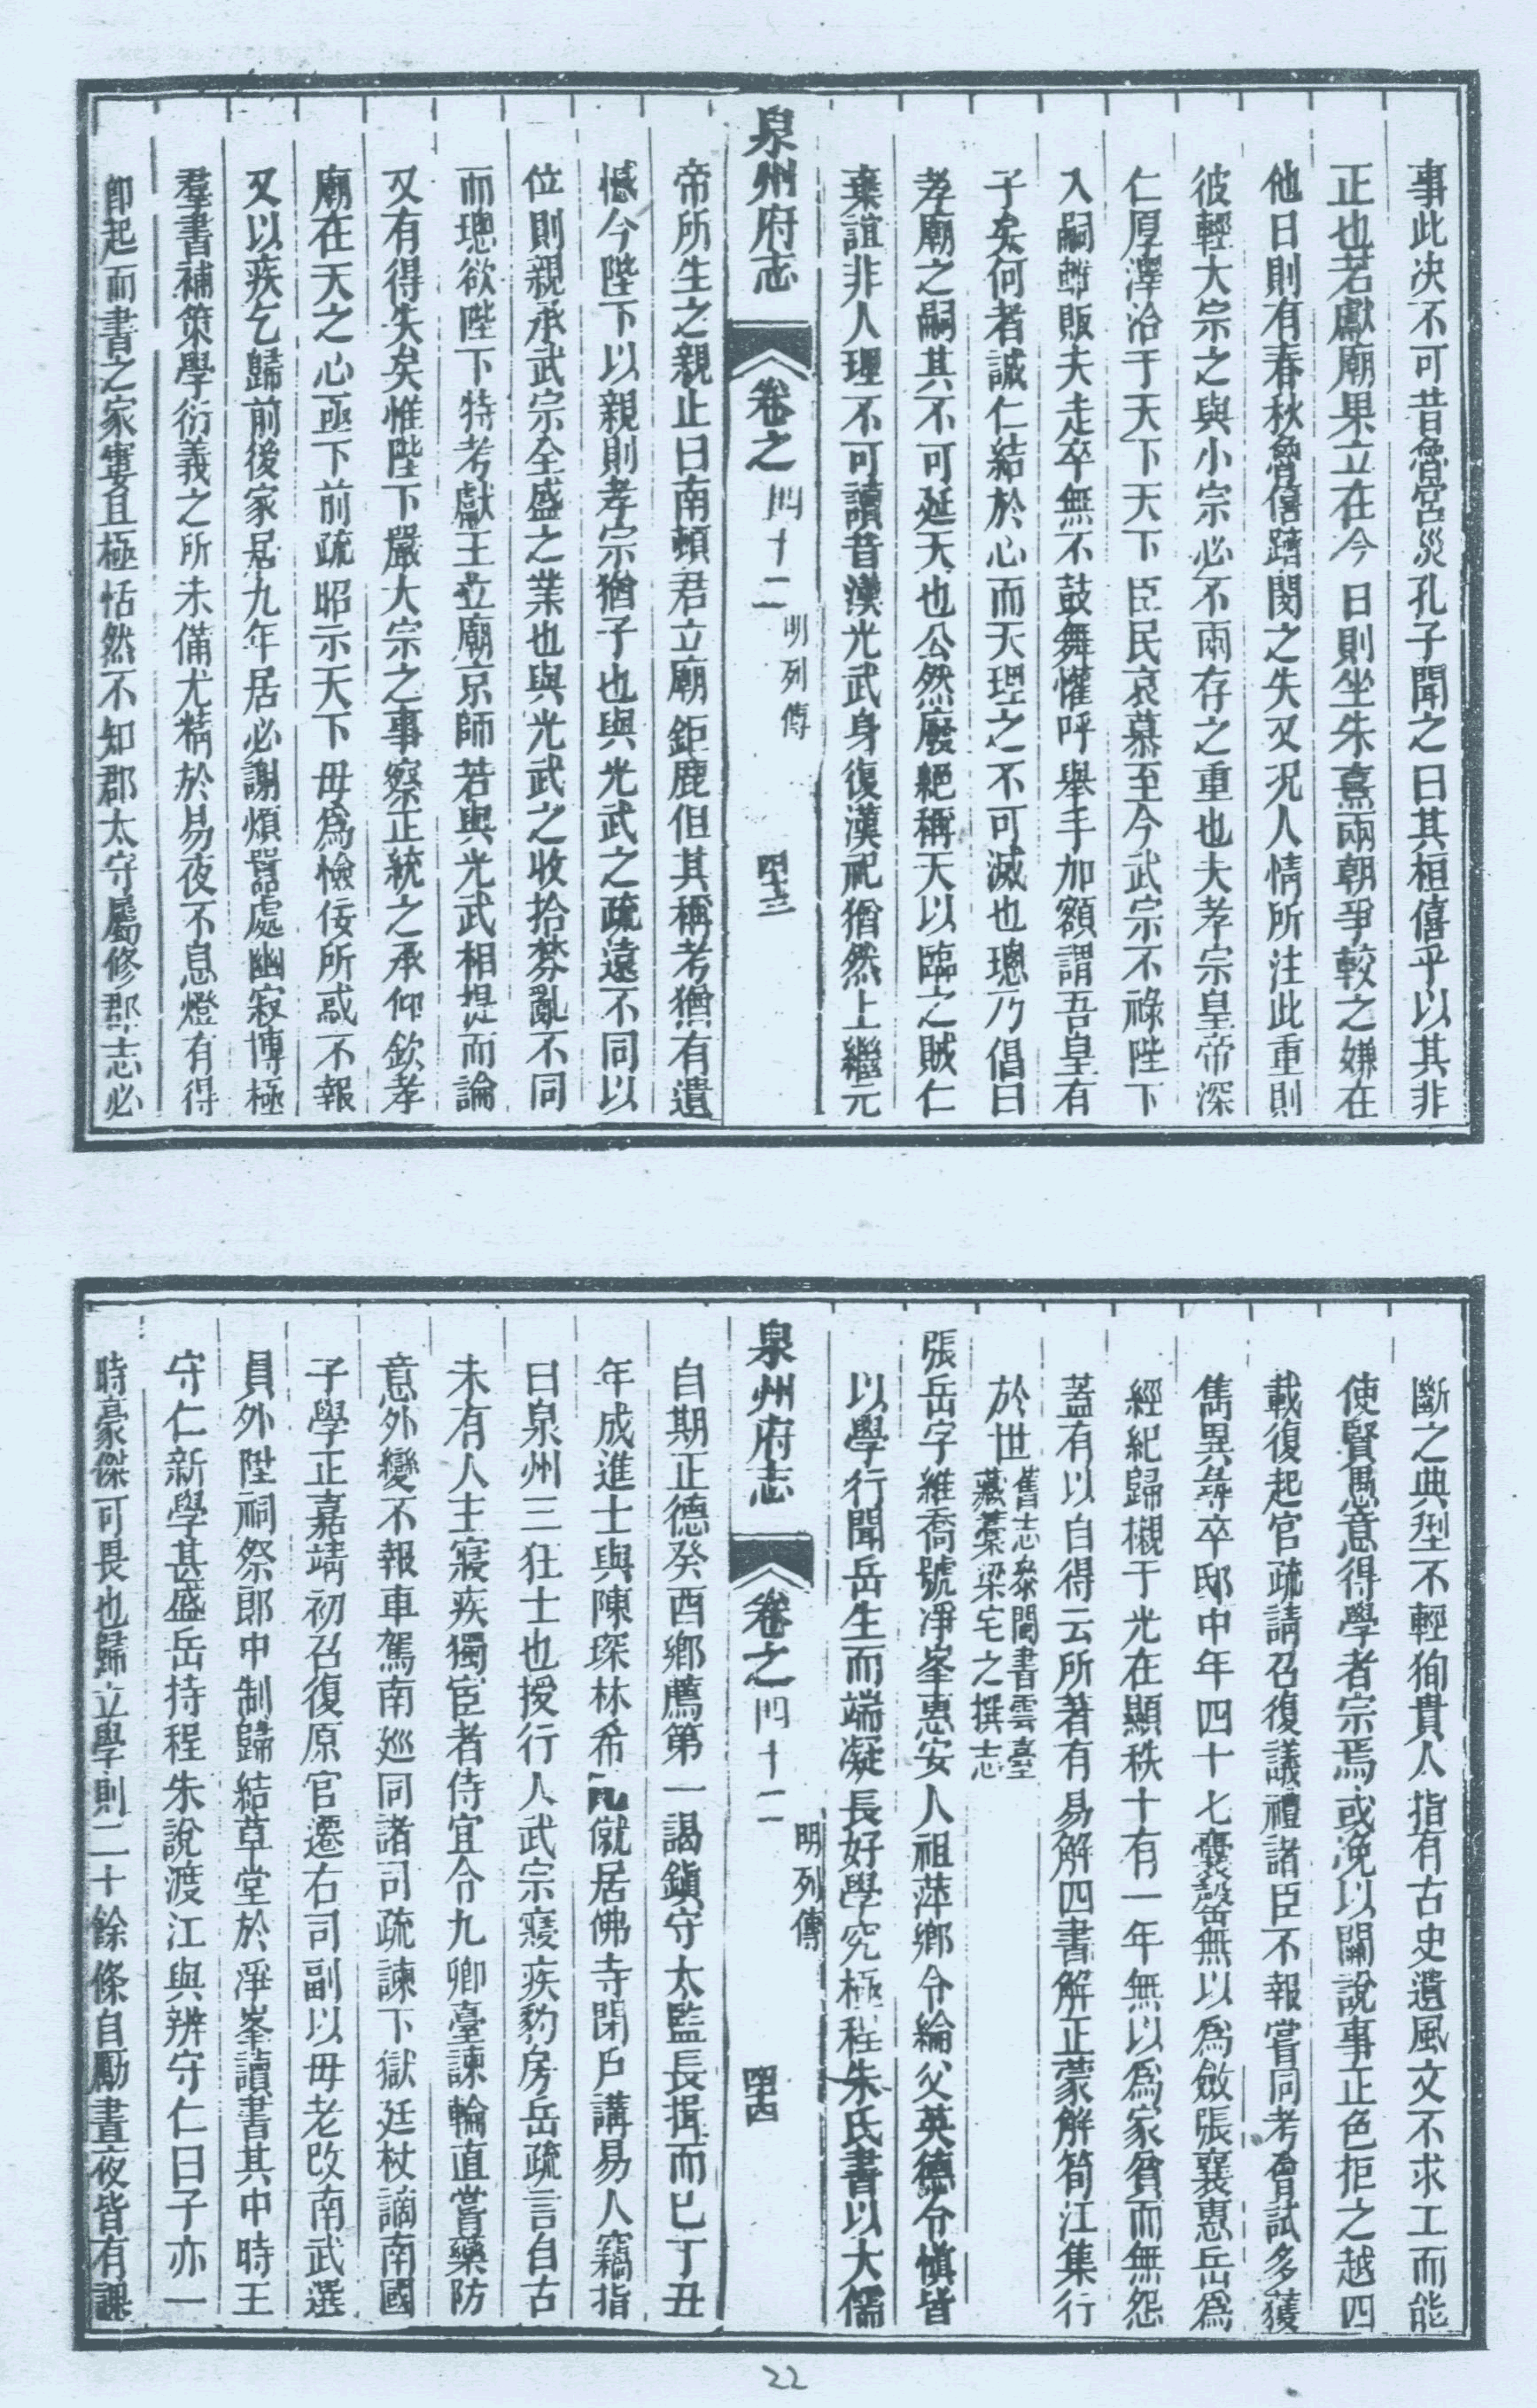 事此決不可昔魯宮災孔子聞之曰其桓僖乎以其非
正也若獻廟果立在今日則坐朱熹兩朝爭較之嫌在
他日則有春秋魯僖躋閔之失又況人情所注此重則
彼輕大宗之與小宗必不兩存之重也夫孝宗皇帝深
仁厚澤洽于天下天下臣民哀慕至今武宗不祿陛下
入嗣雖販夫走卒無不鼓舞懽呼舉手加額謂吾皇有
子矣何者誠仁結於心而天理之不可滅也璁乃倡曰
孝廟之嗣其不可延天也公然廢絕稱天以臨之賊仁
棄誼非人理不可讀昔漢光武身復漢祀猶然上繼元
泉州府志
卷之四十二
明列傳
四十三
帝所生之親止曰南頓君立廟鉅鹿但其稱考猶有遺
憾今陛下以親則孝宗猶子也與光武之疏遠不同以
位則親承武宗全盛之業也與光武之收拾棼亂不同
而璁欲陛下特考獻王立廟京師若與光武相提而論
又有得失矣惟陛下嚴大宗之事察正統之承仰欽孝
廟在天之心亟下前疏昭示天下毋為憸佞所惑不報
又以疾乞歸前後家居九年居必謝煩囂處幽寂博極
羣書補策學衍義之所未備尤精於易夜不息燈有得
卽起而書之家寠且極恬然不知郡太守屬修郡志必
斷之典型不輕狥貴人指有古史遺風文不求工而能
使賢愚意得學者宗焉或浼以關說事正色拒之越四
載復起官疏請召復議禮諸臣不報嘗同考會試多獲
雋異尋卒邸中年四十七囊罄無以爲斂張襄惠岳爲
經紀歸櫬于光在顯秩十有一年無以爲家貧而無怨
蓋有以自得云所著有易解四書解正蒙解筍江集行
於世
舊志叅閩書雲臺
藏藁梁宅之撰志
張岳字維喬號淨峯惠安人祖萍鄉令綸父英德令愼皆
以學行聞岳生而端凝長好學究極程朱氏書以大儒
泉州府志
卷之四十二
明列傳
四十四
自期正德癸酉鄉薦第一謁鎮守太監長揖而已丁丑
年成進士與陳琛林希元僦居佛寺閉戶講易人竊指
曰泉州三狂士也授行人武宗寢疾豹房岳疏言自古
未有人主寢疾獨宦者侍宜令九卿臺諫輪直嘗藥防
意外變不報車駕南巡同諸司疏諫下獄廷杖謫南國
子學正嘉靖初召復原官遷右司副以毋老改南武選
員外陞祠祭郎中制歸結草堂於淨峯讀書其中時王
守仁新學甚盛岳持程朱說渡江與辨守仁曰子亦一
時豪傑可畏也歸立學則二十餘條自勵晝夜皆有課
22